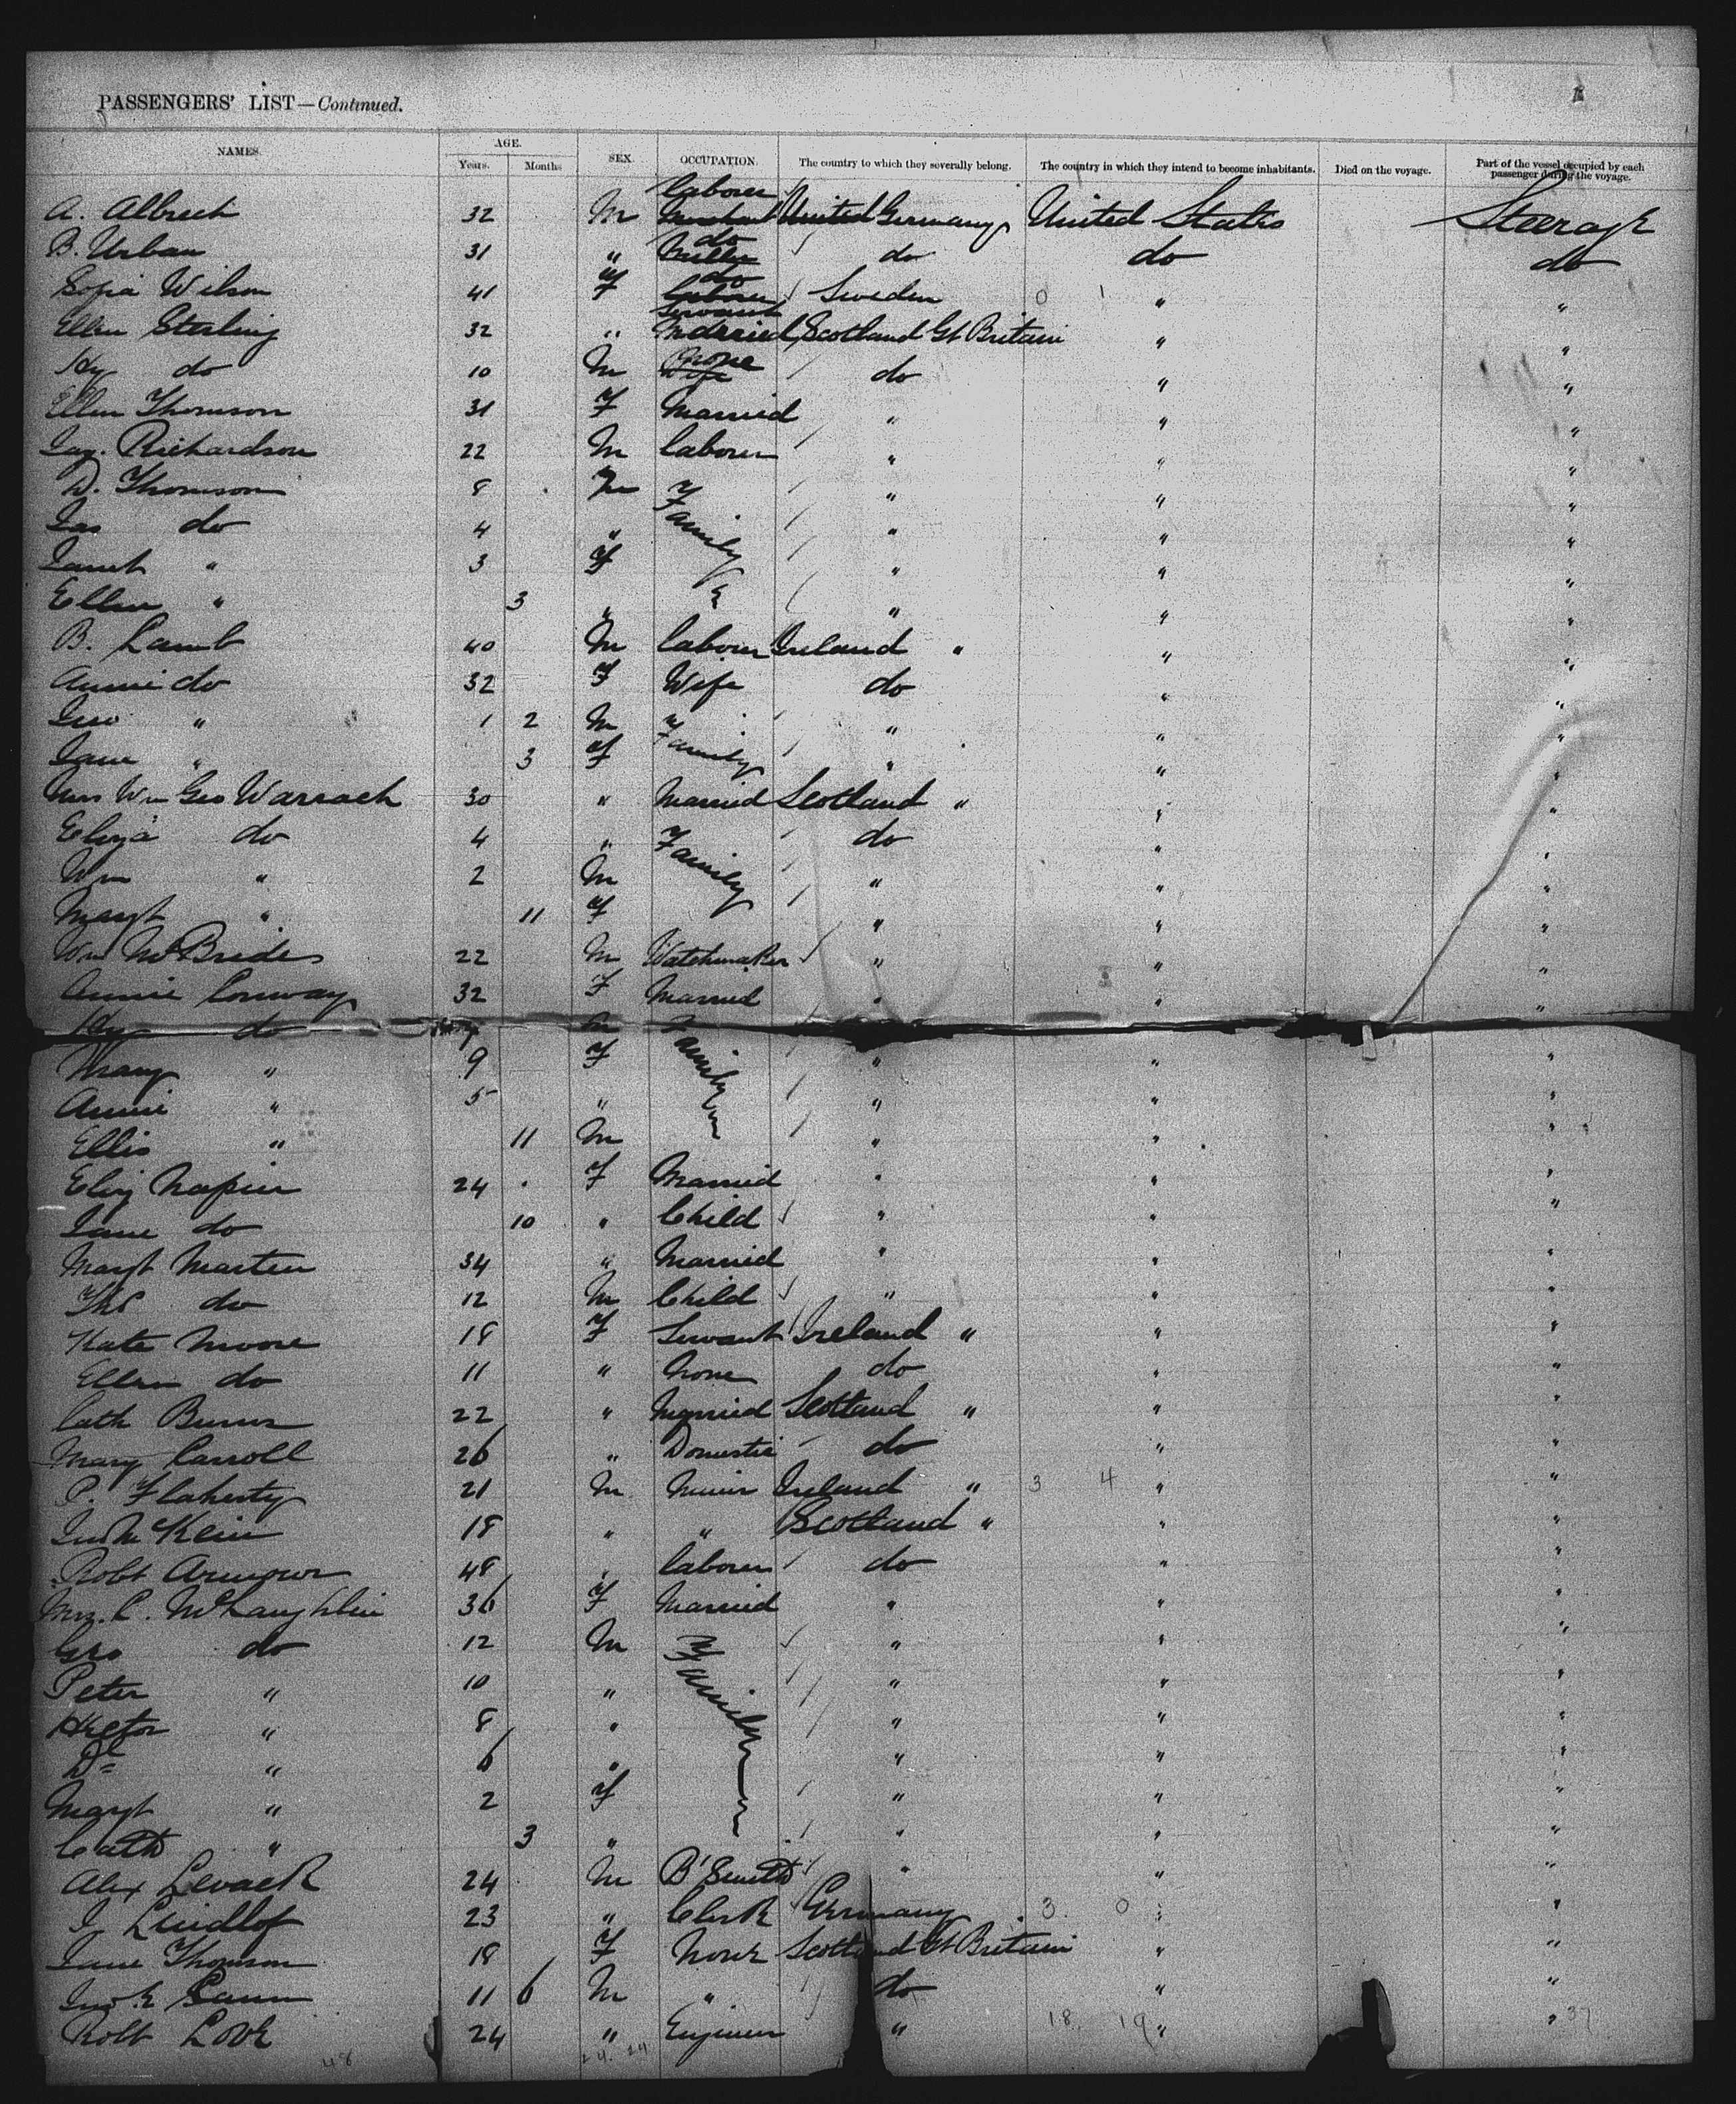 PASSENGERS' LIST—Continued.
NAMES. AGE. Years. Months. SEX. OCCUPATION. The country to which they severally belong. The country in which they intend to become inhabitants. Died on the voyage. Part of the vessel occupied by each passenger during the voyage.
A. Albrech 32 M laborer United Germany United States Steerage
B. Urban 31 " Miller do do do do
Sofia Wilson 41 F laborer do Sweden 0 1 " "
Ellen Sterling 32 " Servant Married Scotland Gt Britain " "
Hy do 10 M None do " "
Ellen Thomson 31 F Married " " "
Jas. Richardson 22 M laborer " " "
D. Thomson 8 M Family " " "
Jas do 4 " " " "
Janet " 3 F " " "
Ellen " 3 " " " "
B. Lamb 40 M laborer Ireland " " "
Annie do 32 F Wife do " "
Geo " 1 2 M Family " " "
Jane " 3 F " " "
Mrs Wm Geo Warrack 30 " Married Scotland " " "
Eliza do 4 " Family do " "
Wm " 2 M " " "
Margt " 11 F " " "
Wm McBrides 22 M Watchmaker " " "
Annie Conway 32 F Married " " "
Hy do M Family
Mary " 9 F " " "
Annie " 5 " " " "
Ellis " 11 M " " "
Eliz Napier 24 F Married " " "
Jane do 10 " Child " " "
Margt Marten 34 " Married " " "
Ths do 12 M Child " " "
Kate Moore 18 F Servant Ireland " " "
Ellen do 11 " None do " "
Cath Burns 22 " Married Scotland " " "
Mary Carroll 26 " Domestic do " "
P. Flaherty 21 M Miner Ireland " 3 4 " "
Jno McKein 18 " " Scotland " " "
Robt Armour 48 " laborer do " "
Mrs. C. McLaughlin 36 F Married " " "
Geo do 12 M Family " " "
Peter " 10 " " " "
Hector " 8 " " " "
Dd " 6 " " " "
Margt " 2 F " " "
Cath " 3 " " " "
Alex Levack 24 M B'Smith " " "
J. Lindlof 23 " Clerk Germany 3 0 " "
Jane Thomson 18 F None Scotland Gt Britain " "
11 6 M " do " "
Robt Love 24 " Engineer " 18 19 " " 37
48 24 24